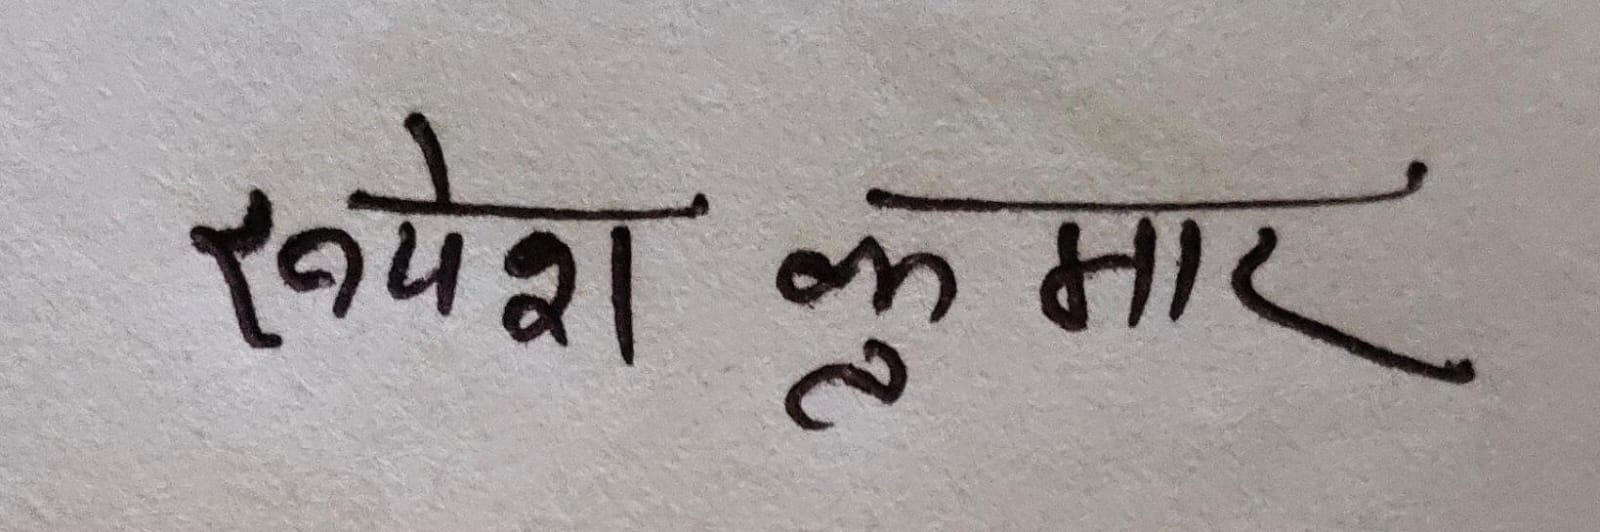 रूपेश कुमार